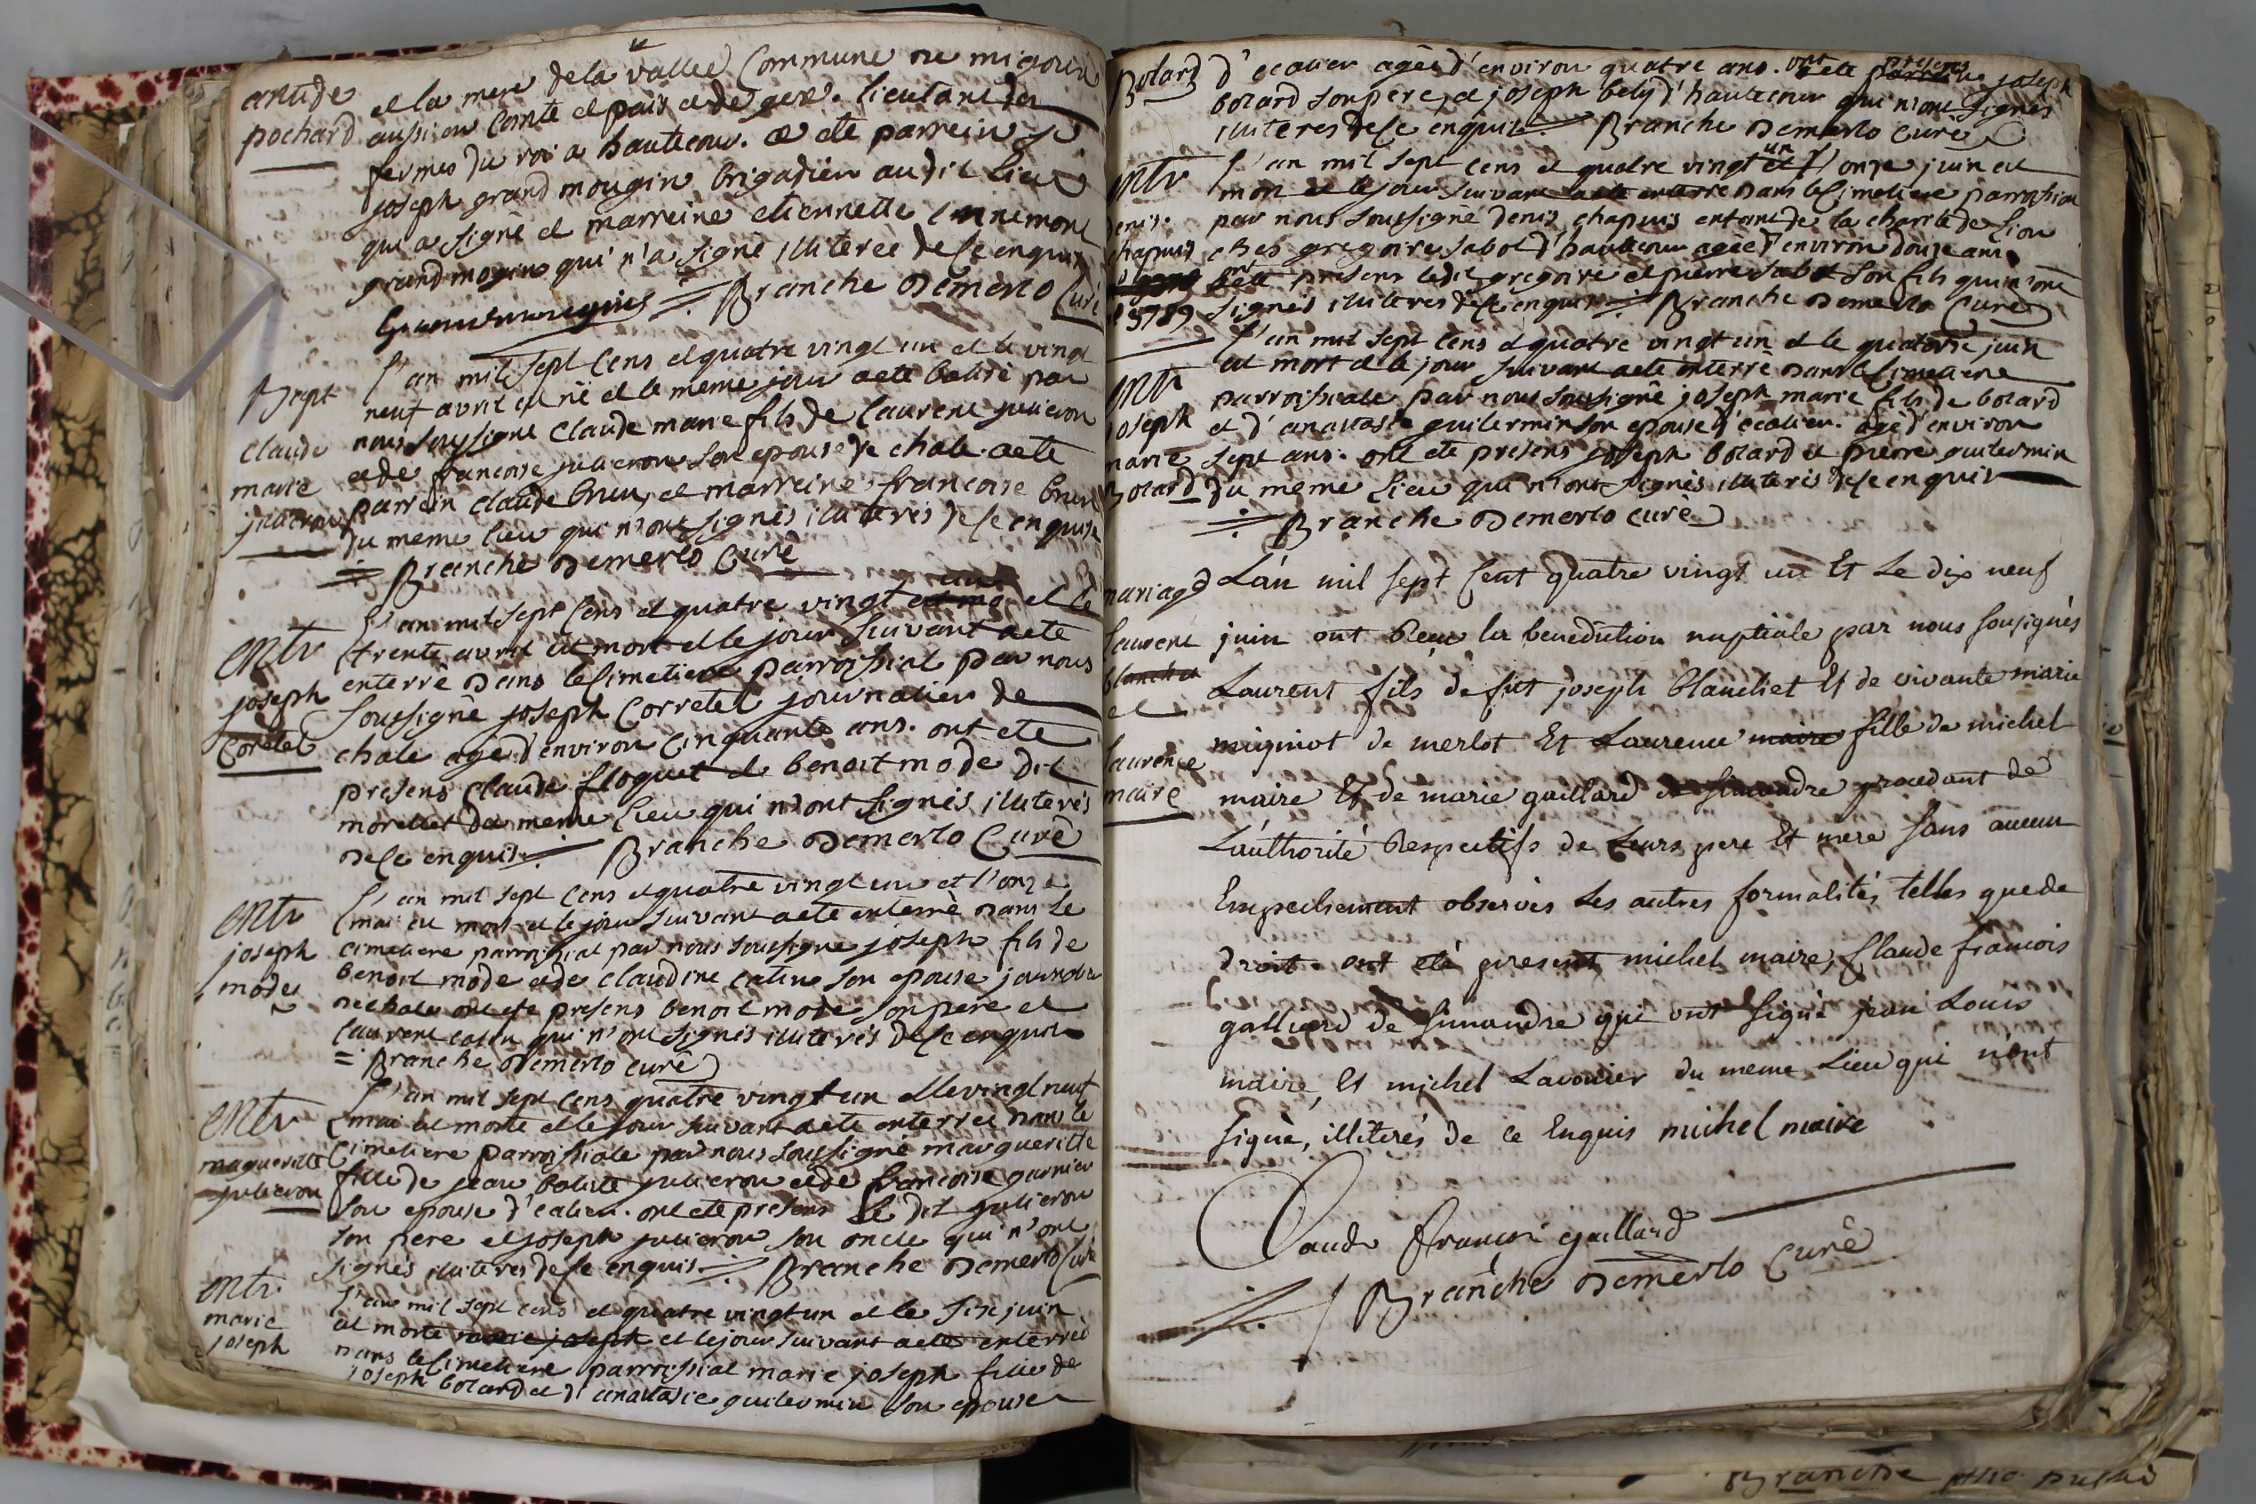 anude
pochard
et la mere de la vallee Commune de
aussi en Comte et pais et de gex. lieutant des
fermes du roi a hautecour. a ete parrein
joseph grand mougin brigadier audit lieu
qui a signé et marreine etiennette
grandmogin qui n'a signé illiteree de ce enquise
Grandmougin Branche Demerlo Curé
Bapt
claude
marie
julieron
l'an mil sept Cens et quatre vingt un et le vingt
neuf avril est né et le meme jour a ete batisé par
nous soussigné Claude marie fils de laurent julieron
et de francoise julieron son epouse de chale. a ete
parrein claude brun, et marreine francoise brun
du meme lieu qui n'ont signés illiterés de ce enquise
Branche Demerlo Curé
entr
joseph
Coretet
l'an mil sept Cens et quatre vingt un et le
trente avril est mort et le jour suivant a ete
enterré dans le Cimetiere parroissial par nous
soussigné joseph Corretet journalier de
chale agé d'environ Cinquante ans. ont ete
presens Claude floquet et benoit mode dit
morellet du meme lieu qui n'ont signés illiterés
de ce enquis Branche Demerlo Curé
entr
joseph
mode
l'an mil sept Cens et quatre vingt un et l'onze
mai est mort et le jour suivant a ete enterré dans le
cimetiere parroissial par nous soussigné joseph fils de
benoit mode et de claudine catin son epouse
de chale ont ete presens benoit mode son pere et
laurent catin qui n'ont signés illiterés de ce enquis
Branche Demerlo curé
entr
marguerite
julieron
l'an mil sept Cens quatre vingt un et le vingt neuf
mai est morte et le jour suivant a ete enterrée dans le
Cimetiere parroissiale par nous soussigné marguerite
fille de jean batiste julieron et de francoise garnier
son epouse d'ecatieu. ont ete presens le dit julieron
son pere et joseph julieron son oncle qui n'ont
signés illiteres de ce enquis Branche Demerlo Curé
entr
marie
joseph
l'an mil sept cens et quatre vingt un et le six juin
est morte marie joseph et le jour suivant a ete enterrée
dans le Cimetiere parroissial marie joseph fille de
joseph botard et d'anastasie guilermin son epouse
Botard
d'ecatieu agée d'environ quatre ans. ont ete presens joseph
botard son pere, et joseph bely d'hautecour qui n'ont signés
illiteres de ce enquis Branche Demerlo curé
entr
denis
chapuis
l'an mil sept cens et quatre vingt un onze juin est
mort et le jour suivant a ete enterré dans le Cimetiere parroissial
par nous soussigné denis chapuis enfant de la charité de lion
ches gregoire sabot d'hautecour agée d'environ douze ans
ont ete presens ledit gregoire et pierre sabot son fils qui n'ont
signés illiterés de ce enquis Branche Demerlo Curé
entr
joseph
marie
Botard
l'an mil sept Cens et quatre vingt un et le quatorse juin
est mort et le jour suivant a ete enterré dans le Cimetiere
parroissiale par nous soussigné joseph marie fils de botard
et d'anastasie guilermin son epouse d'ecatieu. agé d'environ
sept ans. ont ete presens joseph botard et pierre guilermin
du meme lieu qui n'ont signés illiterés de ce enquis
Branche Demerlo curé
mariage
laurent
blanchet
et
laurence
maire
L'an mil sept Cent quatre vingt un Et Le dix neuf
juin ont Reçu la benediction nuptiale par nous sousignés
Laurent fils de fut joseph blanchet Et de vivante marie
migniot de merlot Et Laurence maire fille de michel
maire Et de marie gaillard de simandre procedant de
L'authorité Respectifs de Leurs pere Et mere sans aucun
Empechement observés les autres formalités telles que de
Droit. ont eté present michel maire, Claude francois
galliard de simandre qui ont signé jean Louis
maire, Et michel Lavorier du meme Lieu qui n'ont
signé, illiterés de ce Enquis michel maire
Claude François gaillard
Branche Demerlo Curé
Branche